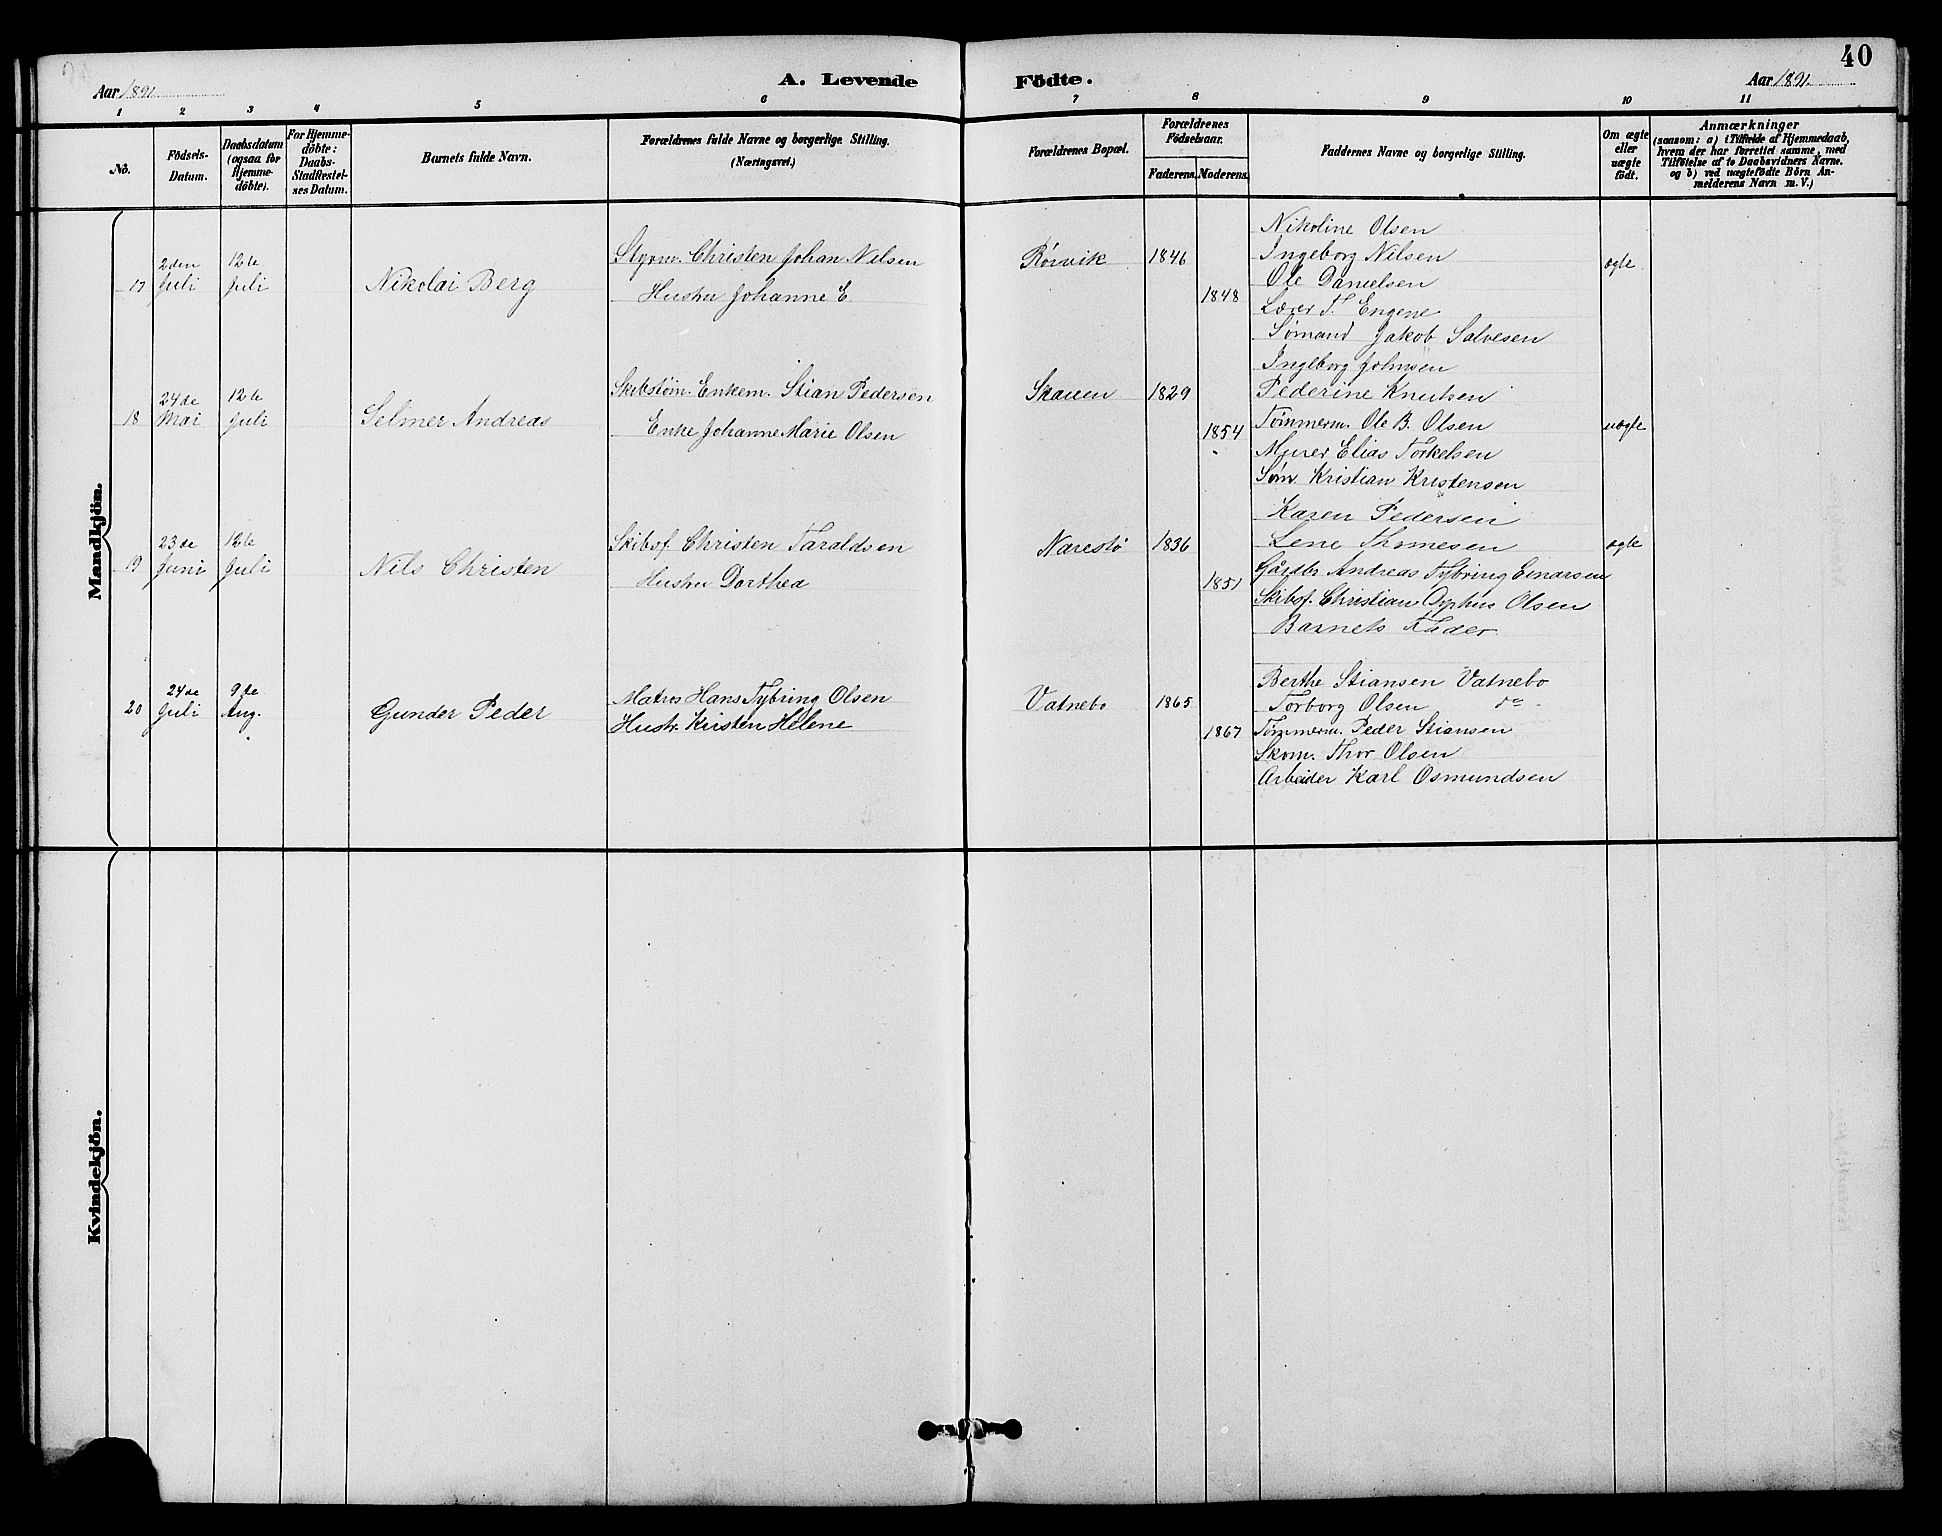 40
Aar 1891
A. Levende Födte.
Aar 1891
1 2 3 4 5 6 7 8 9 10 11
No.
Födsels-
Datum.
Daabsdatum
(ogsaa for
Hjemme-
döbte).
For Hjemme-
döbte:
Daabs-
Stadfæstel-
ses Datum.
Barnets fulde Navn.
Forældrenes fulde Navne og borgerlige Stilling.
(Næringsvei.)
Forældrenes Bopæl.
Forældrenes
Födselsaar.
Faderens. Moderens.
Faddernes Navne og borgerlige Stilling.
Om ægte
eller
uægte
födt.
Anmærkninger
(saasom: a) i Tilfælde af Hjemmedaab,
hvem der har forrettet samme, med
Tilföielse af to Daabsvidners Navne.
og b) ved uægtefödte Börn An-
melderens Navn m. V.)
Mandkjön.
17
2den
Juli
12te
Juli
Nikolai Berg
Styrm. Christen Johan Nilsen
Hustru Johanne E
Rørvik
1846
1848
Nikoline Olsen
Ingeborg Nilsen
Ole Danielsen
Lærer T. Engene
Sømand Jakob Salvesen
ægte
18
24de
Mai
12te
Juli
Selmer Andreas
Skibstøm. Enkem. Stian Pedersen
Enke Johanne Marie Olsen
Skauen
1829
1854
Ingeborg Johnsen
Pederine Knutsen
Tømmerm. Ole B. Olsen
Murer Elias Torkelsen
Søm. Kristian Kristensen
uægte
19
23de
Juni
12te
Juli
Nils Christen
Skibsf. Christen Taraldsen
Hustru Dorthea
Narestø
1836
1851
Karen Pedersen
Lene Thomesen
Gårdbr Andreas Tybring Einarsen
Skibsf. Christian Olsen
Barnets Fader
ægte
20
24de
Juli
9de
Aug.
Gunder Peder
Matros Hans Tybring Olsen
Hustr. Kirsten Helene
Vatnebo
1865
1867
Berthe Stiansen Vatnebo
Torborg Olsen do
Tømmerm. Peder Stiansen
Skom. Thor Olsen
Arbeider Karl Osmundsen
Kvindekjön.